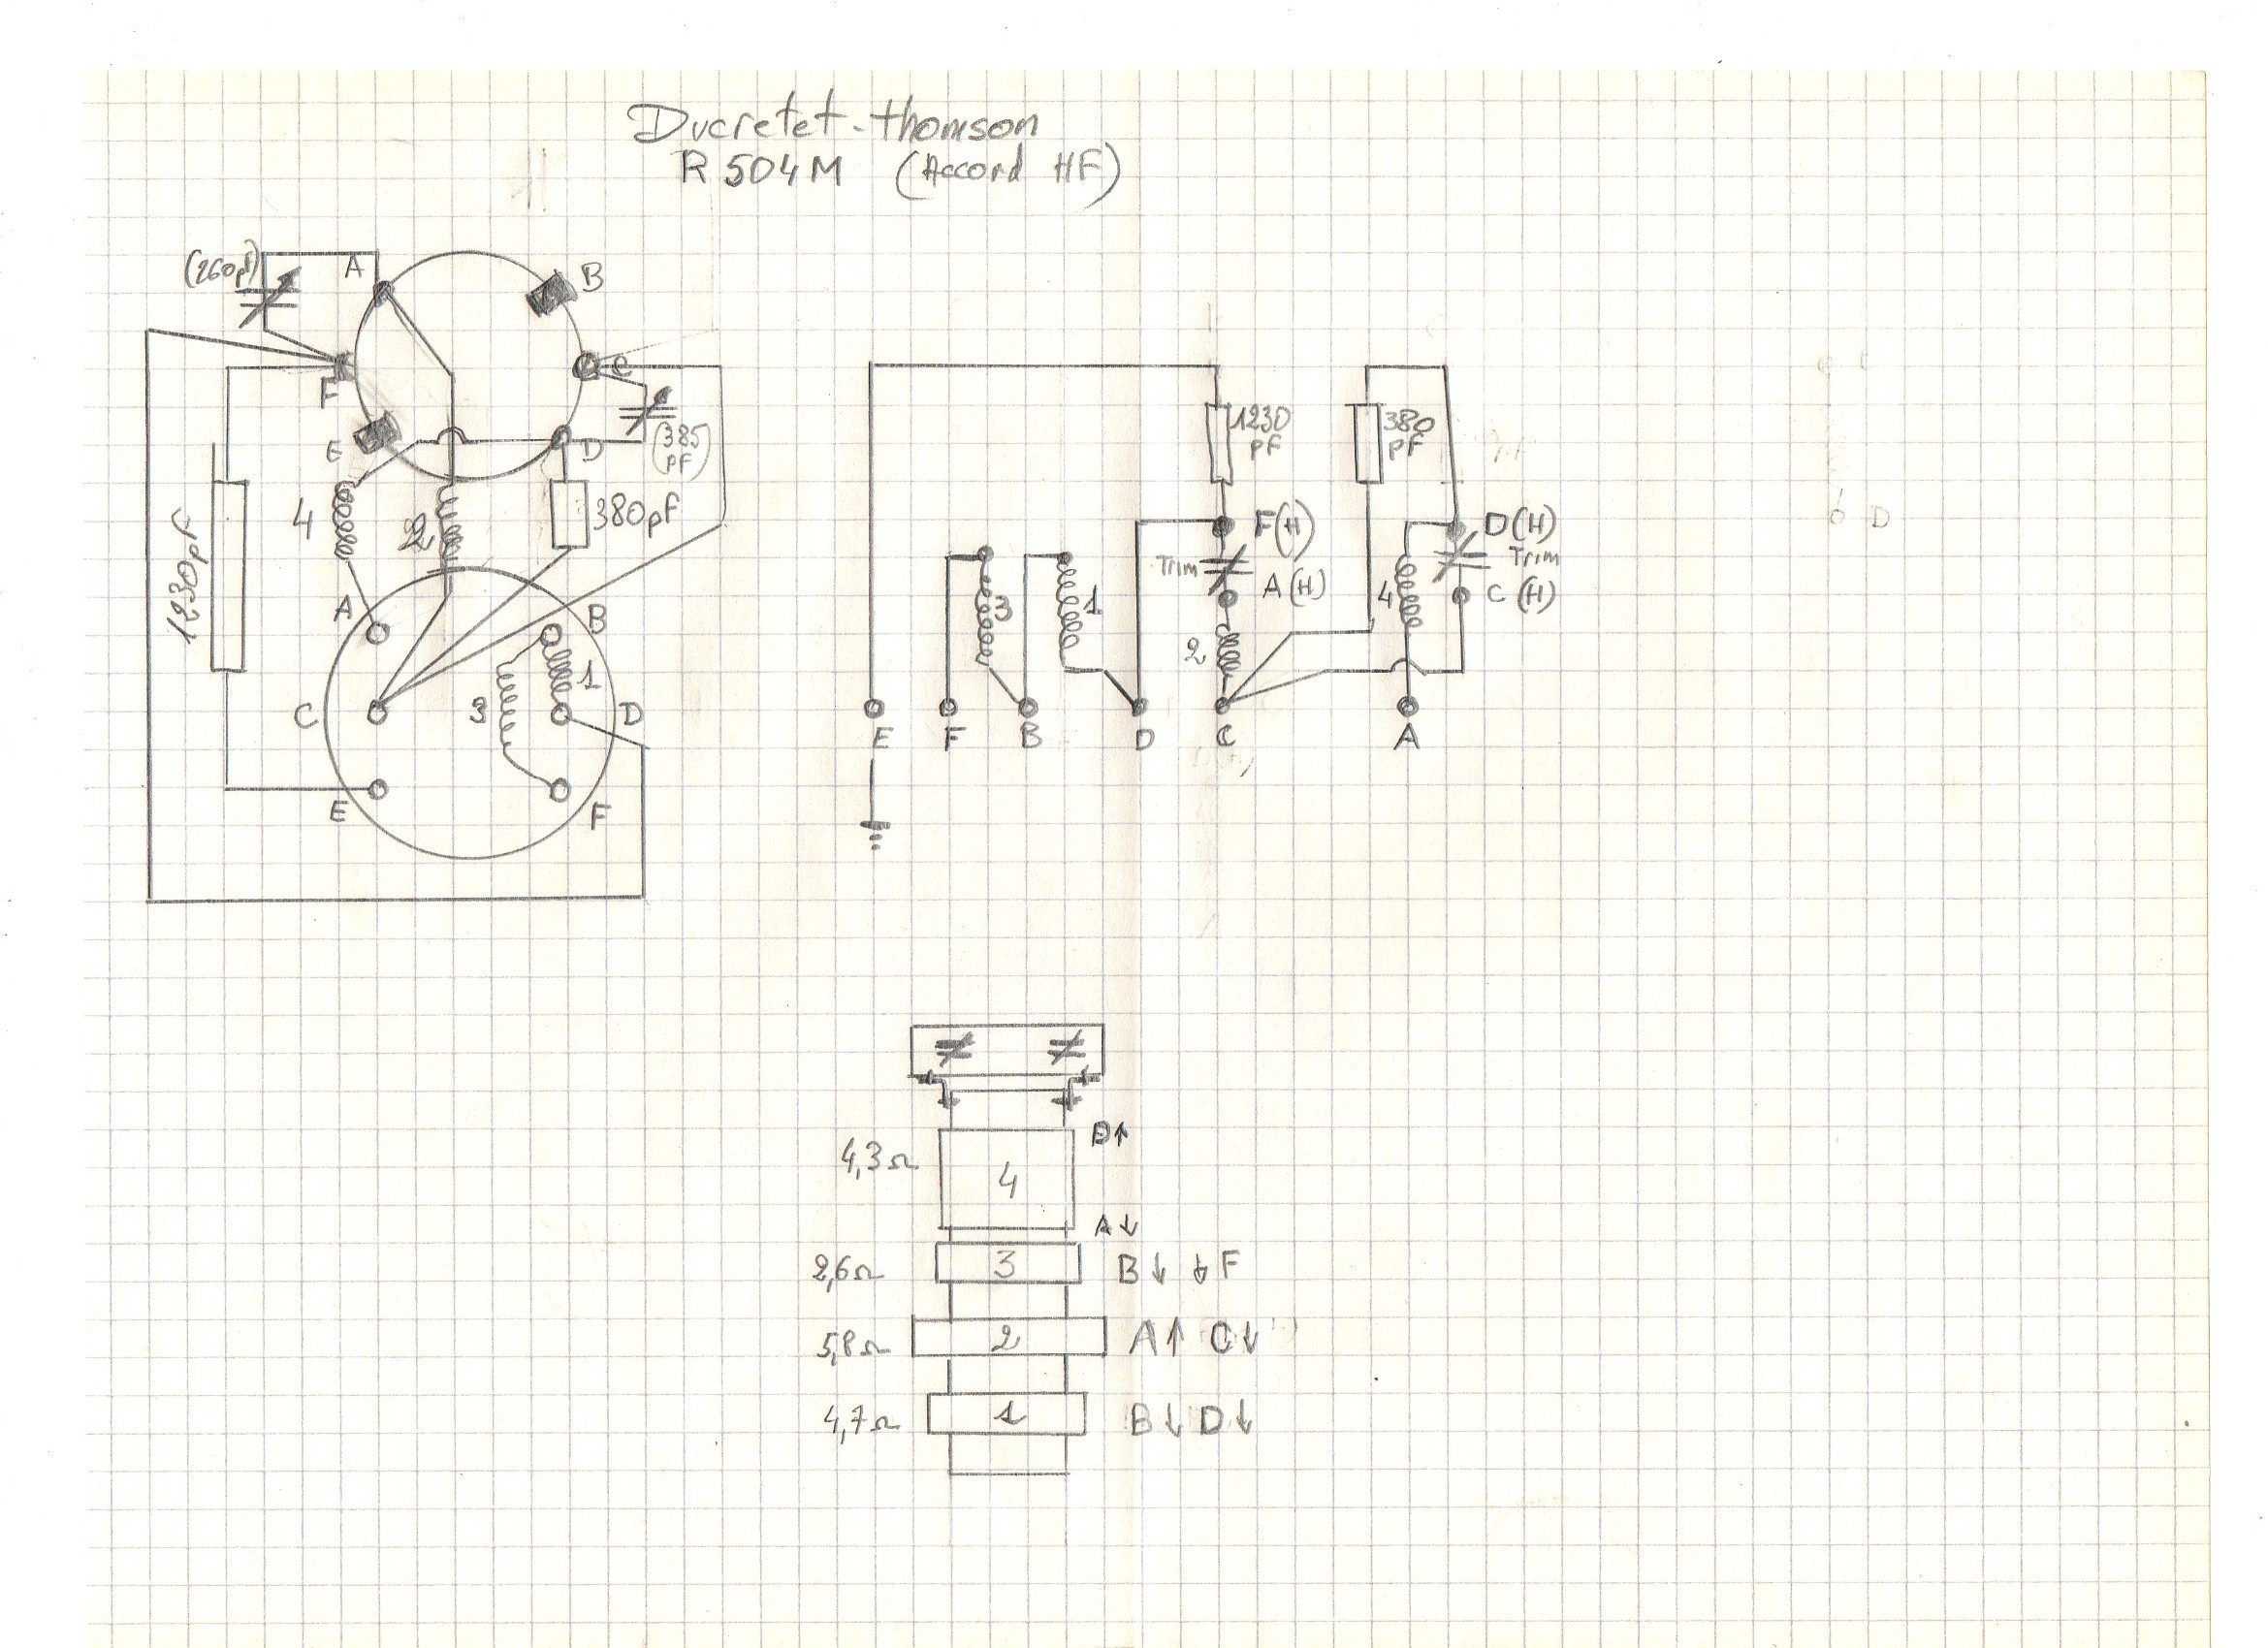 Ducretet-thomson
R 504 M (Accord HF)
(260pF)
A
B
F
C
E
D
(385
PF)
4
2
380pF
1230pF
A
B
1
C
3
D
E
F
1230
pF
380
pF
F(H)
D(H)
Trim
A(H)
Trim
C(H)
3
1
2
4
E
F
B
D
C
A
D
D↑
4,3Ω
4
A↓
2,6Ω
3
B↓ ↓F
5,8Ω
2
A↑ C↓
4,7Ω
1
B↓ D↓